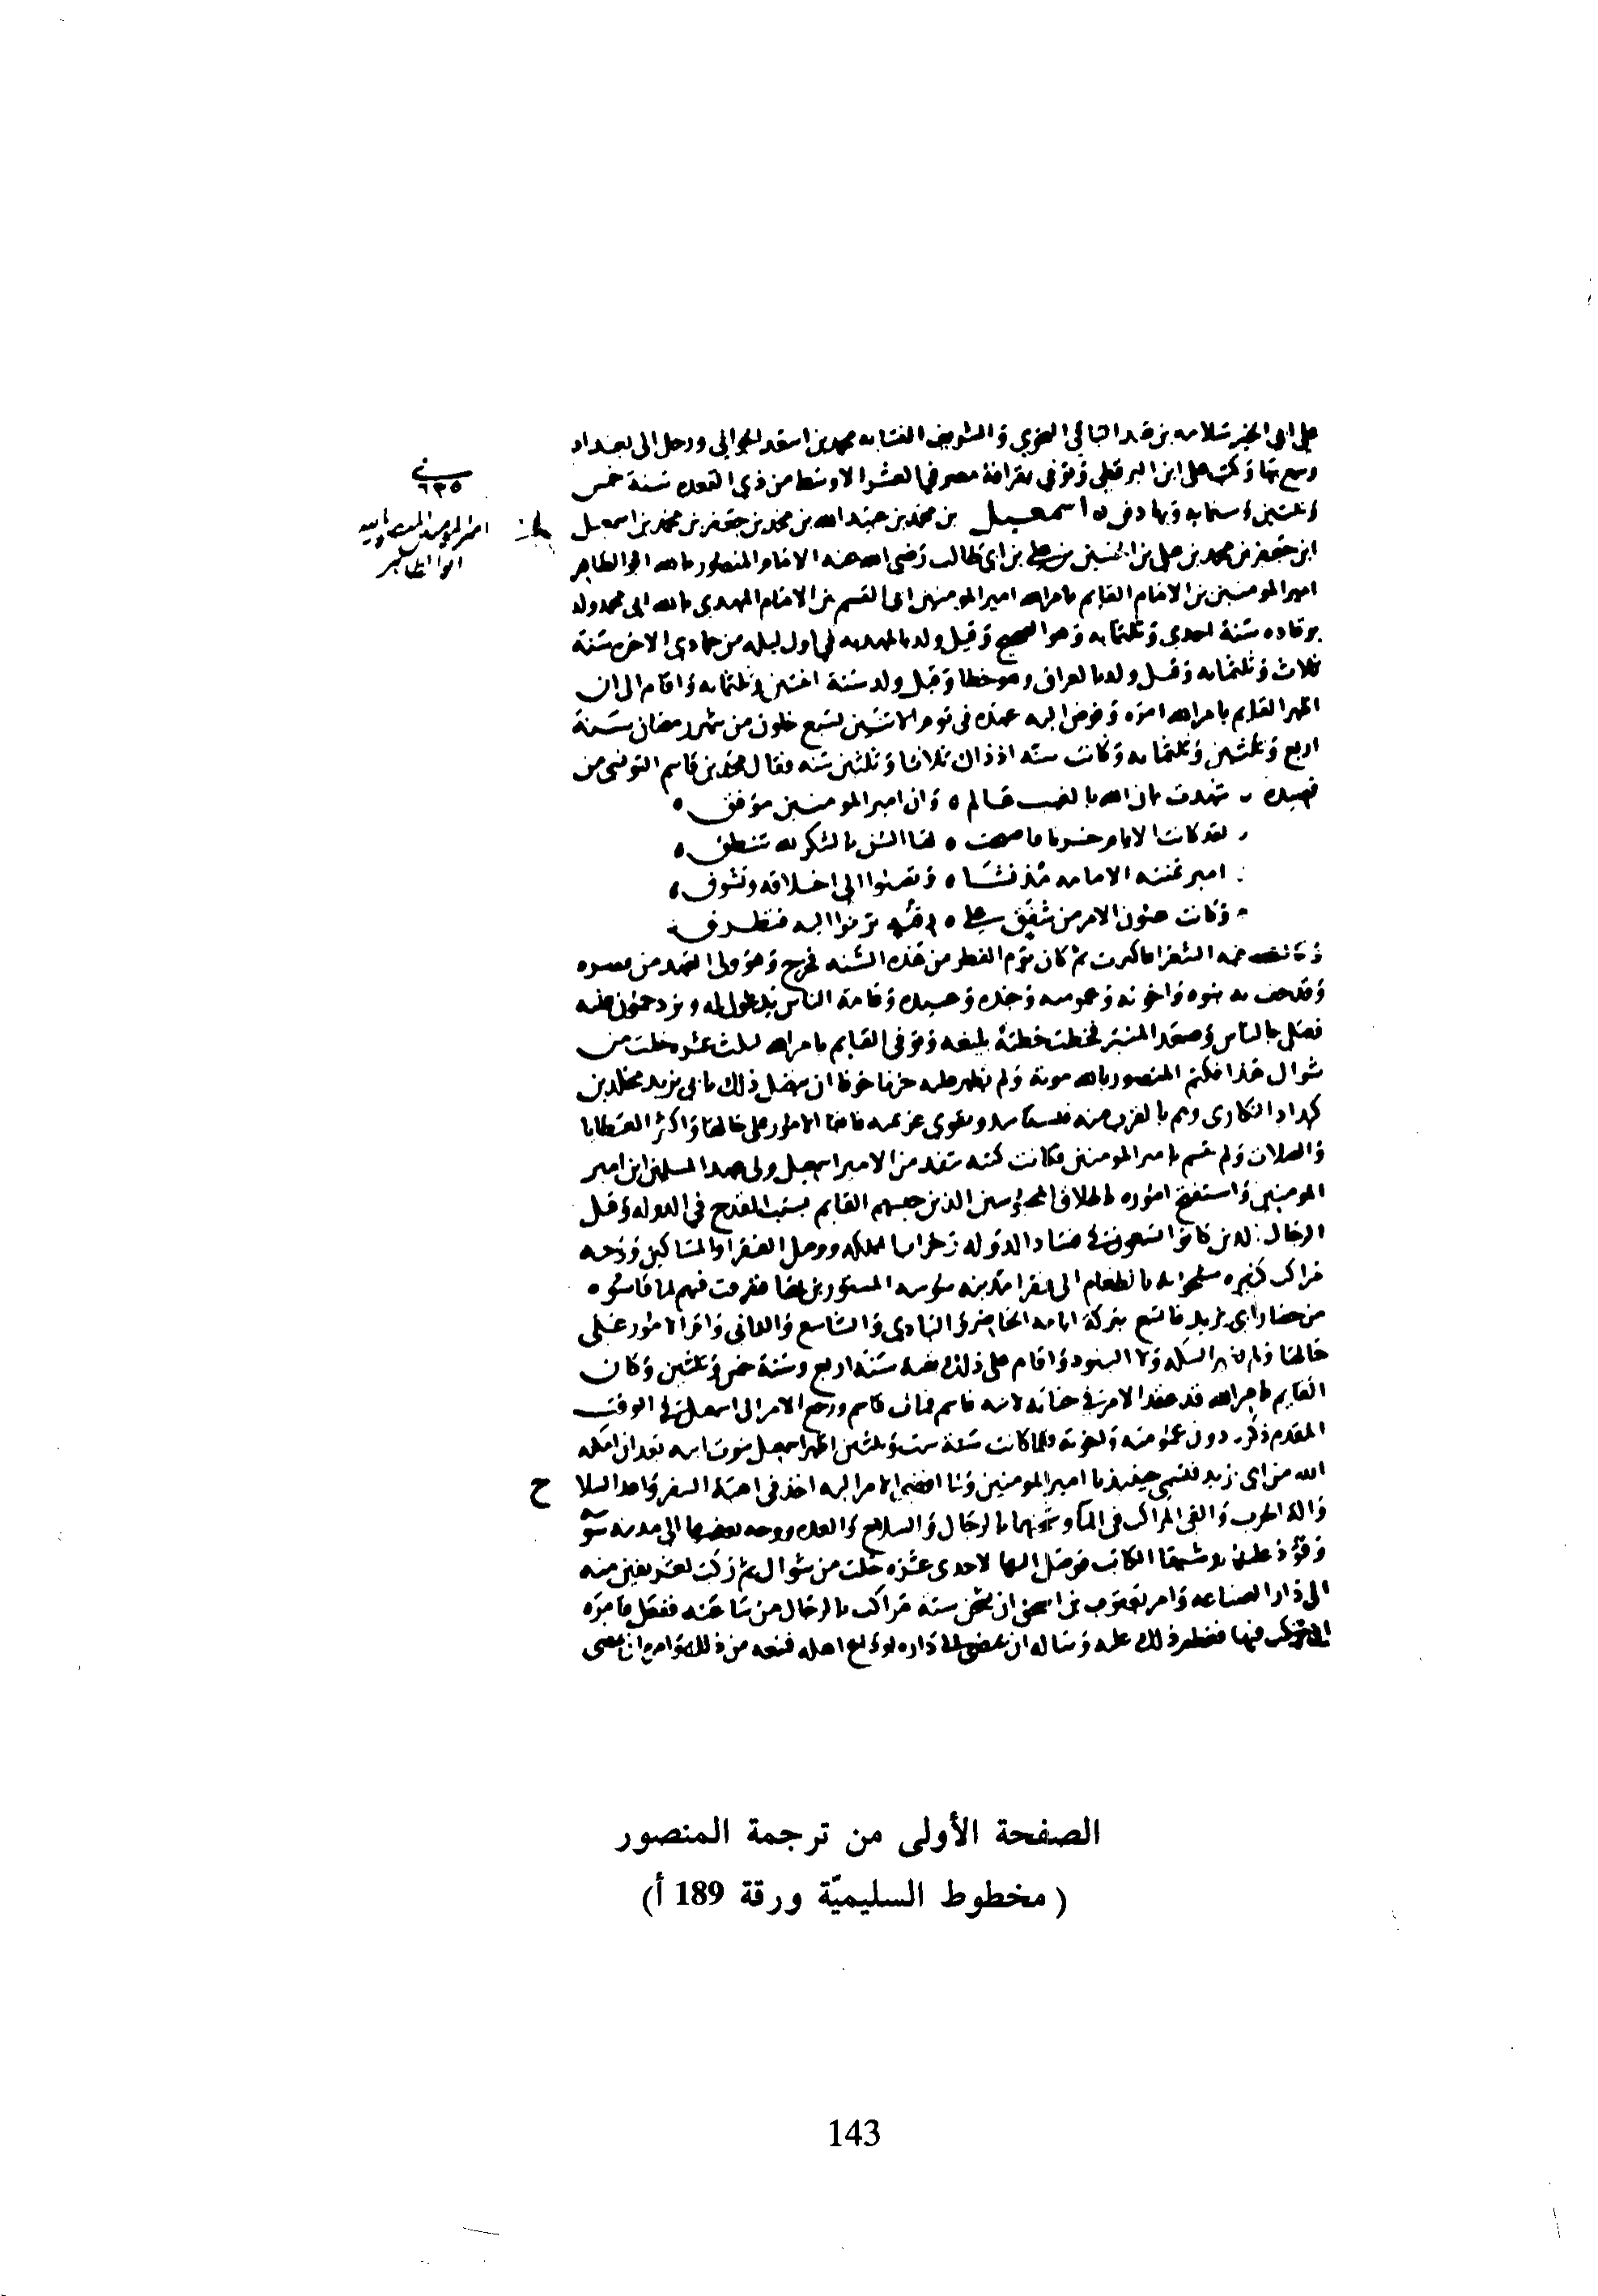 على ابى الخير سلامه بن عبد الباقى النحوي والشريف النسابه محمد بن اسعد الجوانى ورحل الى بغداد
وسمع بها وكتب على ابن البرفطى وتوفى بقرافة مصر فى العشر الاوسط من ذي القعده سنة خمس
وثلثين وستمايه وبها دفن ٥ اسمعيل بن محمد بن عبد الله بن محمد بن جعفر بن محمد بن اسمعيل
سنة
٦٣٥
ابن جعفر بن محمد بن على بن الحسين بن على بن ابى طالب رضى الله عنه الامام المنصور بالله ابو الطاهر
امير المومنين بن الامام القايم بامر الله امير المومنين ابى القسم بن الامام المهدى بالله ابى محمد ولد
برقاده سنة احدى وثلثمايه وهو الصحيح وقيل ولد بالمهديه فى اول ليله من جمادى الاخره سنة
ثلاث وثلثمايه وقيل ولد بالعراق وهو خطا وقيل ولد سنة اثنتين وثلثمايه واقام الى ان
اظهر القايم بامر الله امره وفوض اليه عهده فى يوم الاثنين لسبع خلون من شهر رمضان سنة
اربع وثلثين وثلثمايه وكانت سنه اذ ذاك ثلاثا وثلثين سنه فقال محمد بن قاسم التونسى من
قصيده شهدت بان الله بالغيب عالم ٥ وان امير المومنين موفق ٥
لقد كانت الايام خرسا فاصبحت ٥ لها السن بالشكر لله تنطق ٥
امير تمنته الامامه مذ نشا ٥ وتصبوا الى اخلاقه وتشوق ٥
وكانت عيون الامر من شيق به ترنوا اليه فتطرق
ثم كان يوم الفطر من هذه السنه فخرج وهو ولى العهد من قصره
وقد حف به بنوه واخوته وعمومته وجنده وعبيده وعامة الناس
فصلى بالناس وصعد المنبر فخطب خطبة بليغه وتوفى القايم بامر الله لثلث عشره خلت من
شوال هذا فكتم المنصور بالله موته ولم يظهر عليه حزنا خوفا ان يتصل ذلك بابى يزيد مخلد بن
كيداد النكارى وهم بالقرب منه ويقوى عزيمه فامضا الامور على حالها واكثر العطايا
والصلات ولم يتسم بامير المومنين فكانت كتبه تنفد من الامير اسمعيل ولى عهد المسلمين ابن امير
المومنين واستفتح اموره باطلاق المحبوسين الذين حبسهم القايم بسبب القدح فى الدوله وقتل
الرجال الذين كانوا يسعون فى فساد الدوله وخراب المملكه ووصل الفقرا والمساكين ووجه
مراكب كثيره مشحونه بالطعام الى فقرا مدينه سوسه المستورين بها ففرقت فيهم لما قاسوه
من حصار ابى يزيد فانتفع ببركة ايامه الحاضر والبادى والشاسع والدانى واقر الامور على
حالها ولم يغير السكه ولا البنود واقام على ذلك بقية سنة اربع وسنة خمس وثلثين وكان
القايم بامر الله قد عقد الامر فى حياته لابنه قاسم فمات قاسم ورجع الامر الى اسمعيل فى الوقت
المقدم ذكره دون عمومته واخوته فلما كانت سنة ست وثلثين اظهر اسمعيل موت ابيه بعد ان امكنه
الله من ابى يزيد فتسمى حينئذ بامير المومنين ولما افضى الامر اليه اخذ فى اهبة السفر واعد السلا ح
والة الحرب والقى المراكب فى الما وشحنها بالرجال والسلاح والعدد ووجه بعضها الى مدينه سوسه
وقود عليها رشيقا الكاتب فوصل اليها لاحدى عشره خلت من شوال ثم ركب لعشر بقين منه
الى دار الصناعه وامر يعقوب بن اسحق ان يشحن ستة مراكب بالرجال من ساعته ففعل فامره
ان يركب فيها فعظم ذلك عليه وساله ان يمضى الى داره لوداع اهله فمنعه من ذلك وامره ان يمضى
الصفحة الأولى من ترجمة المنصور
( مخطوط السليميّة ورقة 189 أ)
143